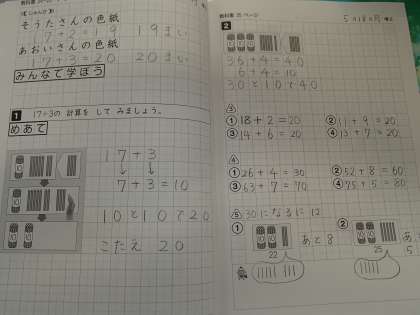 教科書 25 ページ
そうたさんの色紙
17+2=19 19まい
あおいさんの色紙
17+3=20 20まい
みんなで学ぼう
1 17+3の 計算を して みましょう。
めあて
17+3
7+3=10
10と10で20
こたえ 20
教科書 25 ページ
5月18日月
2
36+4=40
6+4=10
30と10で40
③
①18+2=20 ②11+9=20
③14+6=20 ④13+7=20
④
①26+4=30 ②52+8=60
③63+7=70 ④75+5=80
⑤30になるに12
① ②
22 あと8 25
5